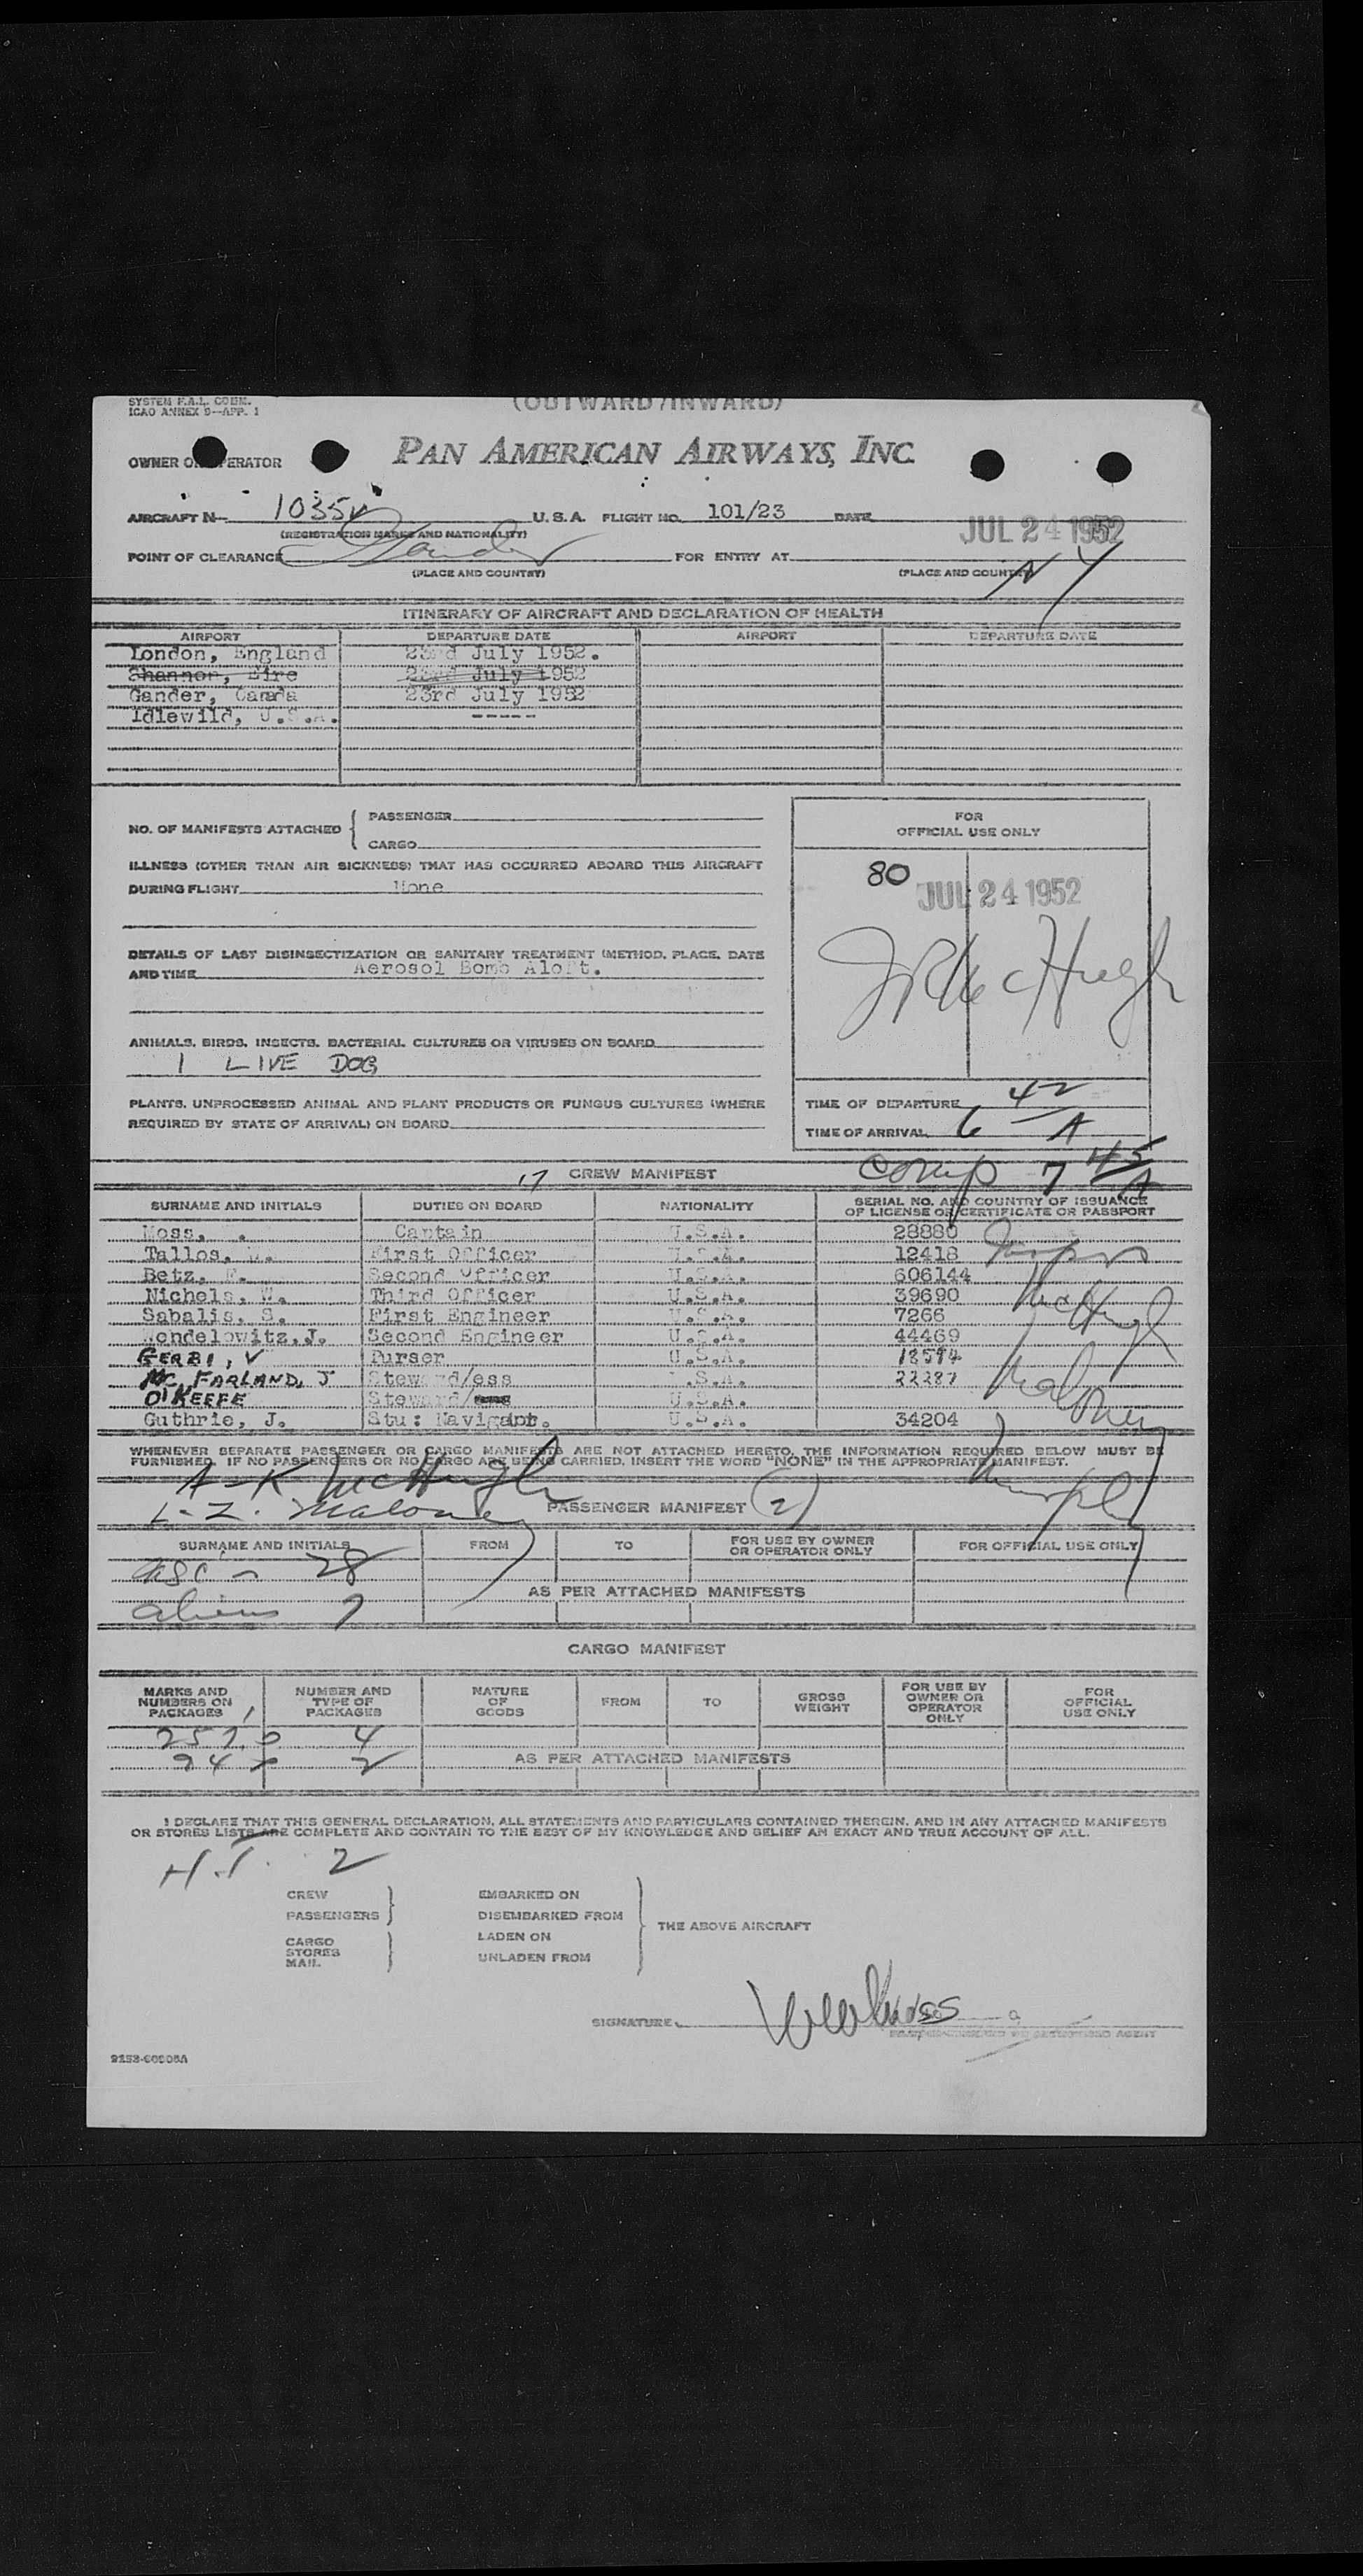 SYSTEM F.A.L. COMM.
ICAO ANNEX 9—APP. 1
(OUTWARD/INWARD)
OWNER OR OPERATOR PAN AMERICAN AIRWAYS, INC.
AIRCRAFT N— 1035V U.S.A. FLIGHT NO. 101/23 DATE JUL 24 1952
(REGISTRATION MARKS AND NATIONALITY)
POINT OF CLEARANCE Gander FOR ENTRY AT NY
(PLACE AND COUNTRY) (PLACE AND COUNTRY)
ITINERARY OF AIRCRAFT AND DECLARATION OF HEALTH
AIRPORT DEPARTURE DATE AIRPORT DEPARTURE DATE
London, England 23rd July 1952.
Shannon, Eire 23rd July 1952
Gander, Canada 23rd July 1952
Idlewild, U.S.A. -----
NO. OF MANIFESTS ATTACHED { PASSENGER
CARGO
FOR
OFFICIAL USE ONLY
ILLNESS (OTHER THAN AIR SICKNESS) THAT HAS OCCURRED ABOARD THIS AIRCRAFT
DURING FLIGHT None
80 JUL 24 1952
JR McHugh
DETAILS OF LAST DISINSECTIZATION OR SANITARY TREATMENT (METHOD, PLACE, DATE
AND TIME Aerosol Bomb Aloft.
ANIMALS, BIRDS, INSECTS, BACTERIAL CULTURES OR VIRUSES ON BOARD
1 LIVE DOG
PLANTS, UNPROCESSED ANIMAL AND PLANT PRODUCTS OR FUNGUS CULTURES (WHERE
REQUIRED BY STATE OF ARRIVAL) ON BOARD
TIME OF DEPARTURE
TIME OF ARRIVAL 6 42 A
comp 7 45 A
17 CREW MANIFEST
SURNAME AND INITIALS DUTIES ON BOARD NATIONALITY SERIAL NO. AND COUNTRY OF ISSUANCE
OF LICENSE OR CERTIFICATE OR PASSPORT
Moss, Captain U.S.A. 28880
Tallos, First Officer U.S.A. 12418
Betz, F. Second Officer U.S.A. 606144
Nichels, W. Third Officer U.S.A. 39690
Sabalis, S. First Engineer U.S.A. 7266
Mendelowitz, J. Second Engineer U.S.A. 44469
GERBI, V Purser U.S.A. 18594
MC FARLAND, J Steward/ess U.S.A. 22287
O'KEEFE Steward/ U.S.A.
Guthrie, J. Stu: Navigator. U.S.A. 34204
McHugh
Maloney
Murphy
WHENEVER SEPARATE PASSENGER OR CARGO MANIFESTS ARE NOT ATTACHED HERETO, THE INFORMATION REQUIRED BELOW MUST BE
FURNISHED. IF NO PASSENGERS OR NO CARGO ARE BEING CARRIED, INSERT THE WORD "NONE" IN THE APPROPRIATE MANIFEST.
A-K McHugh
L-Z. Maloney PASSENGER MANIFEST (2)
SURNAME AND INITIALS FROM TO FOR USE BY OWNER
OR OPERATOR ONLY FOR OFFICIAL USE ONLY
USC - 28
AS PER ATTACHED MANIFESTS
aliens 7
CARGO MANIFEST
MARKS AND
NUMBERS ON
PACKAGES NUMBER AND
TYPE OF
PACKAGES NATURE
OF
GOODS FROM TO GROSS
WEIGHT FOR USE BY
OWNER OR
OPERATOR
ONLY FOR
OFFICIAL
USE ONLY
4
2 AS PER ATTACHED MANIFESTS
I DECLARE THAT THIS GENERAL DECLARATION, ALL STATEMENTS AND PARTICULARS CONTAINED THEREIN, AND IN ANY ATTACHED MANIFESTS
OR STORES LISTS ARE COMPLETE AND CONTAIN TO THE BEST OF MY KNOWLEDGE AND BELIEF AN EXACT AND TRUE ACCOUNT OF ALL.
H.T. 2
CREW EMBARKED ON
PASSENGERS DISEMBARKED FROM
THE ABOVE AIRCRAFT
CARGO LADEN ON
STORES
MAIL UNLADEN FROM
SIGNATURE
AGENT